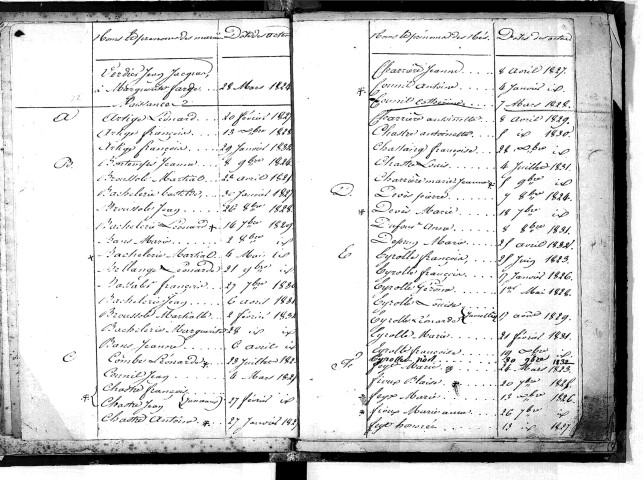 Noms et prénoms des mariés Dates des actes
Verdier Jean Jacques
à Marguerite farge 28 Mars 1824
Naissances
A
Arkge Léonard 20 février 1827
Arkge françoise 13 1828
Arkge françois 29 Janvier 1832
B
Bontemps Jeanne 8 9bre 1824
Broussole Martial 22 avril 1821
Bachelerie 30 Janvier 1827
Broussole Jean 26 8bre 1828
Bachelerie Léonard 14 7bre 1829
Bans Marie 2 8bre ix
Bachelerie Martial 4 Mai ix
Bellange Léonard 21 9bre ix
Bassale françois 27 7bre 1830
Bachelerie Jean 6 avril 1831
Broussole Martial 2 février 1832
Bachelerie Marguerite 28 ix ix
Bans Jeanne 6 avril ix
C
Combe Léonarde 23 Juillet 182
Counil Jean 4 Mars 1825
Chastre françois
Chastre Jean (Jumeaux) 27 février ix
Chastre Antoine 27 Janvier 182
Noms et prénoms des Nés Dates des actes
Charrière Jeanne 8 avril 1827
Counil Antoine 4 Janvier ix
Counil Catherine 7 Mars 1828
Charrière antoinette 8 avril 1829
Chastre antoinette ix 1830
françoise 28 ix
Chastre Louis 4 Juillet 1831
Charrière marie Jeanne 9 9bre ix
D
pierre 7 8bre 1824
Marie 18 7bre ix
Dufour Anne 8 8bre 1831
Depuy Marie 25 avril 1832
E
Eyrolle françois 25 Juin 1823
Eyrolle françois 9 Janvier 1826
Eyrolle 1er Mai 1828
Eyrolle Louise
Eyrolle Léonarde (Jumelles) 21 août 1829
Eyrolle Marie 21 février 1831
Eyrolle françoise 19 ix
Eyrolle 30 9bre 1832
F
Marie 24 Mars 1823
20 7bre 1825
Marie 13 1826
Marie anne 26 7bre ix
13 ix 1827